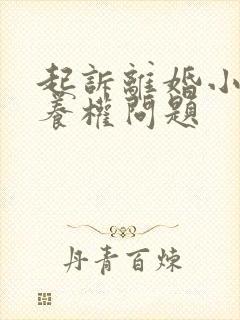 起訴離婚小
養權問題
丹青百煉